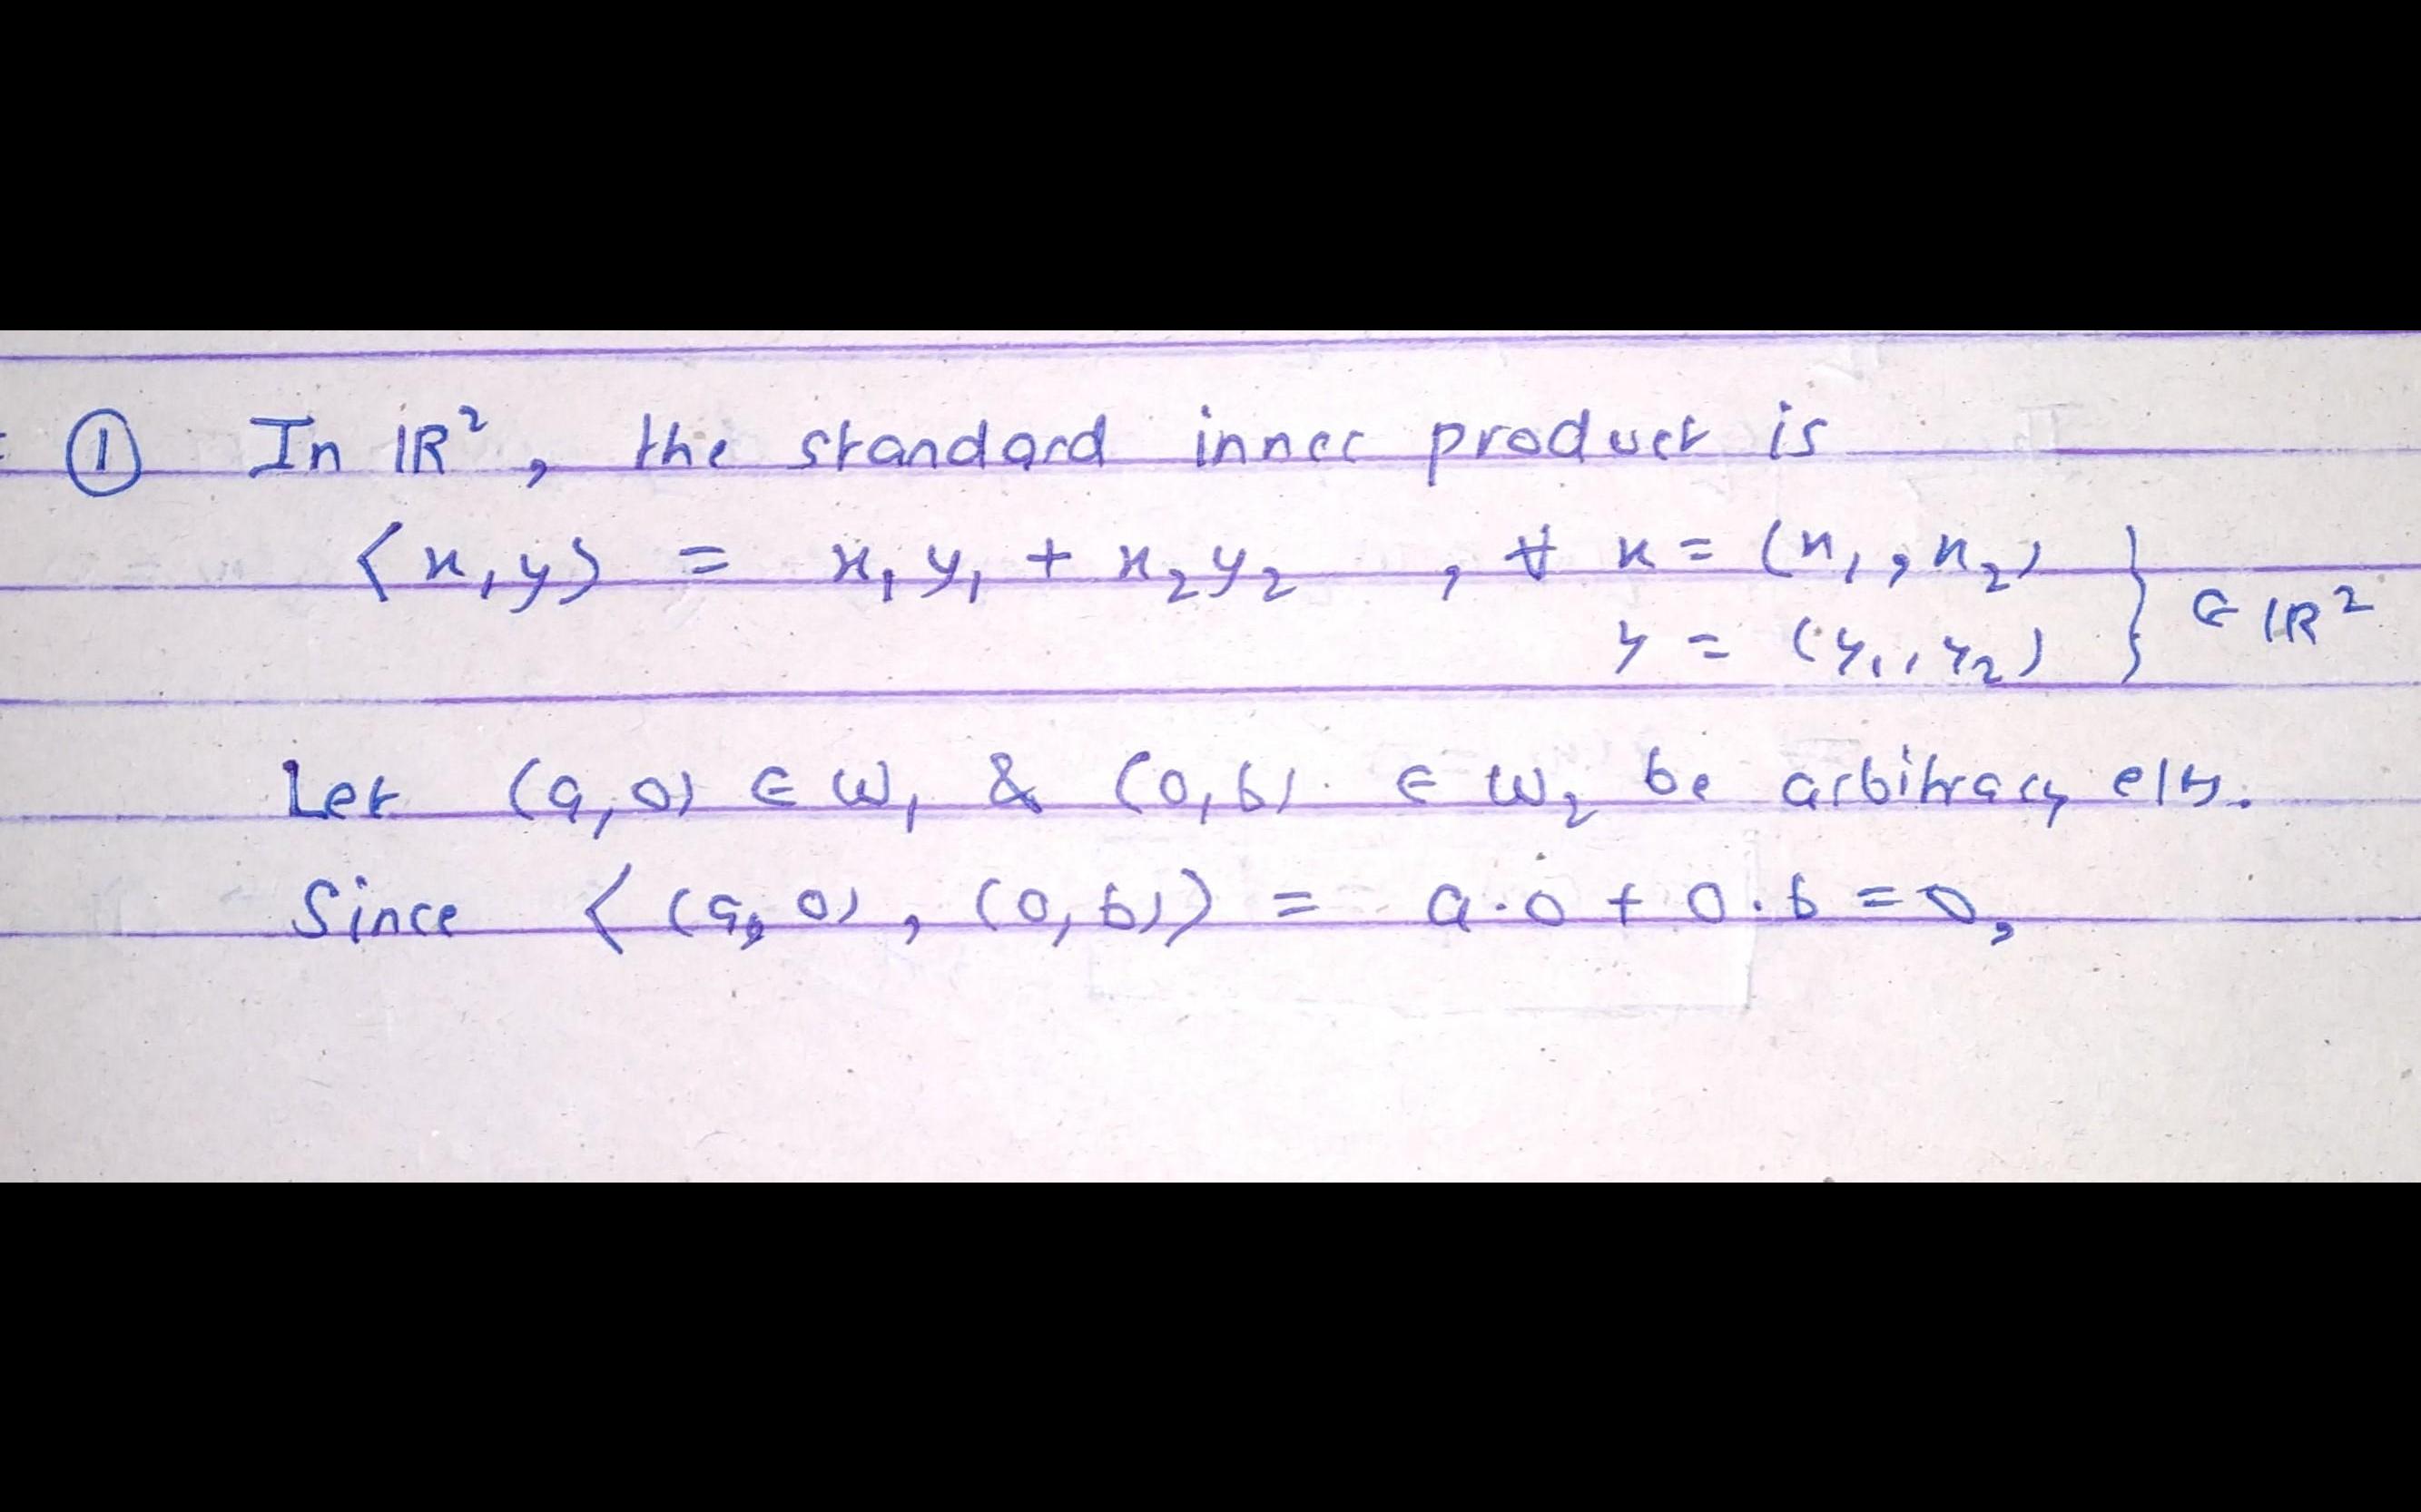 ① In ℝ², the standard inner product is
⟨x,y⟩ = x₁y₁ + x₂y₂ , ∀ x = (x₁,x₂)
y = (y₁,y₂) } ∈ ℝ²
Let (a,0) ∈ W₁ & (0,b) ∈ W₂ be arbitrary elts.
Since ⟨(a,0), (0,b)⟩ = a·0 + 0·b = 0,